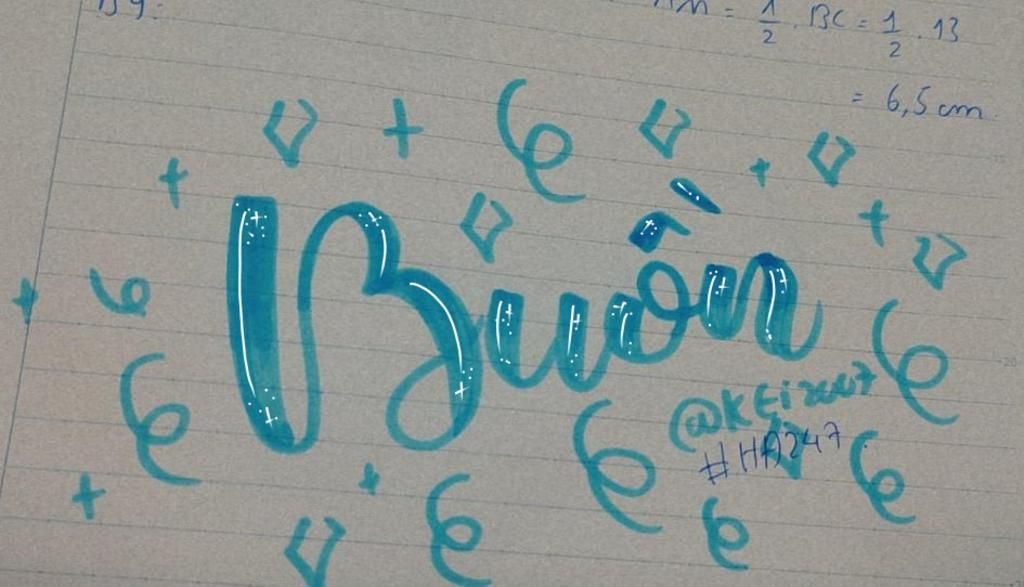 AM = 1/2 . BC = 1/2 . 13
= 6,5 cm
Buồn
@KEi2007
#HA247